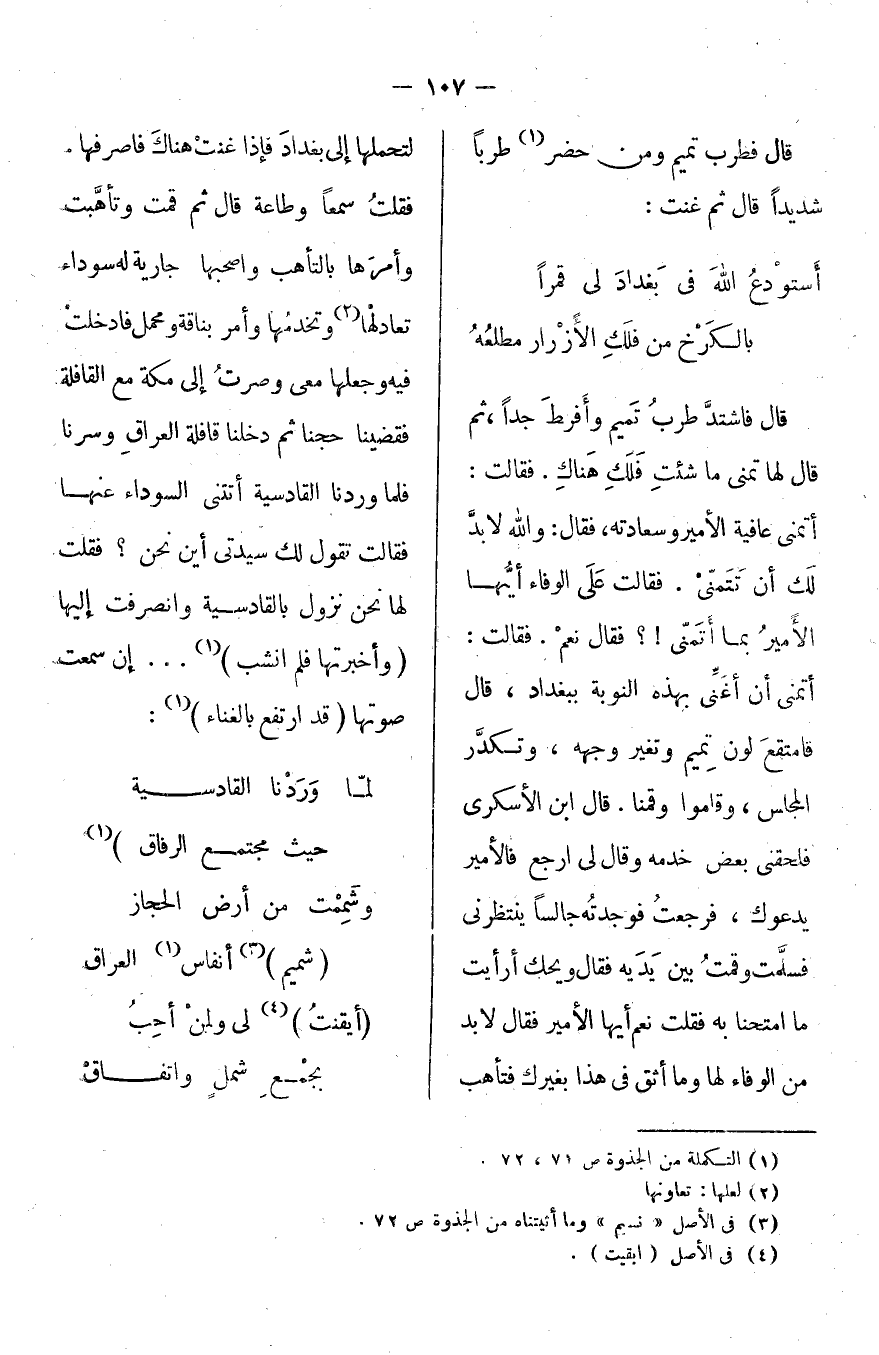 — ١٠٧ —
قال فطرب تميم ومن حضر(١) طرباً
شديداً قال ثم غنت :
أَستوْدعُ اللهَ فى بَغدادَ لى قمراً
بالـكَرْخ من فلَكِ الأَزْرار مطلعُهُ
قال فاشتدَّ طربُ تَميم وأَفرطَ جداً ،ثم
قال لها تمنى ما شئتِ فَلَكِ هَناكِ . فقالت :
أتمنى عافية الأمير وسعادته، فقال: والله لابدَّ
لَك أن تَتَمنّىْ . فقالت عَلَى الوفاء أيُّهـا
الأَميرُ بمـا أَتَمنّى !؟ فقال نعمْ . فقالت :
أتمنى أن أغَنِّى بهذه النوبة ببغداد ، قال
فامتقعَ لون تِميم وتغير وجهه ، وتـكدَّر
المجلس ، وقاموا وقمنا . قال ابن الأسكرى
فلحقنى بعض خدمه وقال لى ارجع فالأمير
يدعوك ، فرجعتُ فوجدتُه جالساً ينتظرنى
فسلَّمت وقمتُ بين يَدَيه فقال ويحك أرأيت
ما امتحنا به فقلت نعم أيها الأمير فقال لابد
من الوفاء لها وما أثق فى هذا بغيرك فتأهب
لتحملها إلى بغدادَ فإذا غنتْ هناكَ فاصرفها .
فقلتُ سمعاً وطاعة قال ثم قمت وتأهَّبت
وأمرَها بالتأهب واصحبها جارية له سوداء
تعادلْها(٢) وتخدمُها وأمر بناقة ومحمل فادخلتْ
فيه وجعلها معى وصرتُ إلى مكة مع القافلة
فقضينا حجنا ثم دخلنا قافلة العراقِ وسرنا
فلما وردنا القادسية أتتنى السوداء عنهـا
فقالت تقول لك سيدتى أين نحن ؟ فقلت
لها نحن نزول بالقادسـية وانصرفت إليها
( وأخبرتها فلم انشب )(١) ... إن سمعت
صوتها ( قد ارتفع بالغناء )(١) :
لمّـا وَرَدْنا القادسـية
حيث مجتمـع الرفاق )(١)
وشَمِمْت من أرض الحجاز
( شميم )(٣) أنفاس(١) العراق
(أيقنتُ )(٤) لى ولمنْ أحِبُ
بجمْـعِ شملٍ واتفـاقْ
(١) التـكملة من الجذوة ص ٧١ ، ٧٢ .
(٢) لعلها : تعاونها
(٣) فى الأصل « نسيم » وما أثبتناه من الجذوة ص ٧٢ .
(٤) فى الأصل ( ابقيت ) .